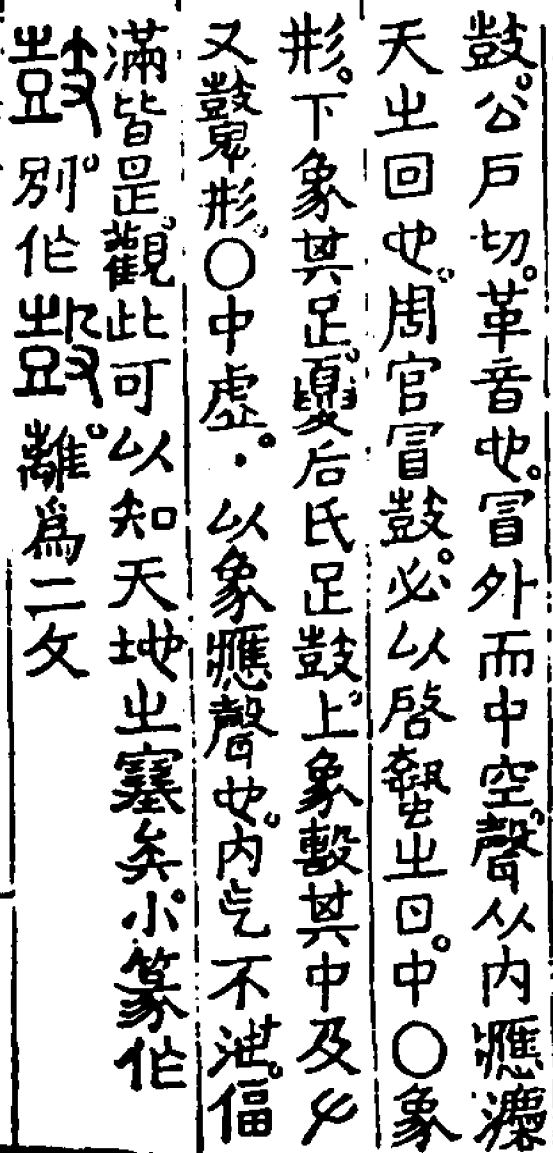 鼓。公戶切。革音也。冒外而中空。聲从内應灋
天㞢回也。周官冒鼓。必以啓蟄㞢日。中〇象
形。下象其足。夏后氏足鼓。上象㪤其中及
又鼛形。〇中虛。·以象應聲也。内气不泄。偪
滿皆是。觀此可以知天地㞢塞矣。小篆作
鼓。別作鼔。離爲二文